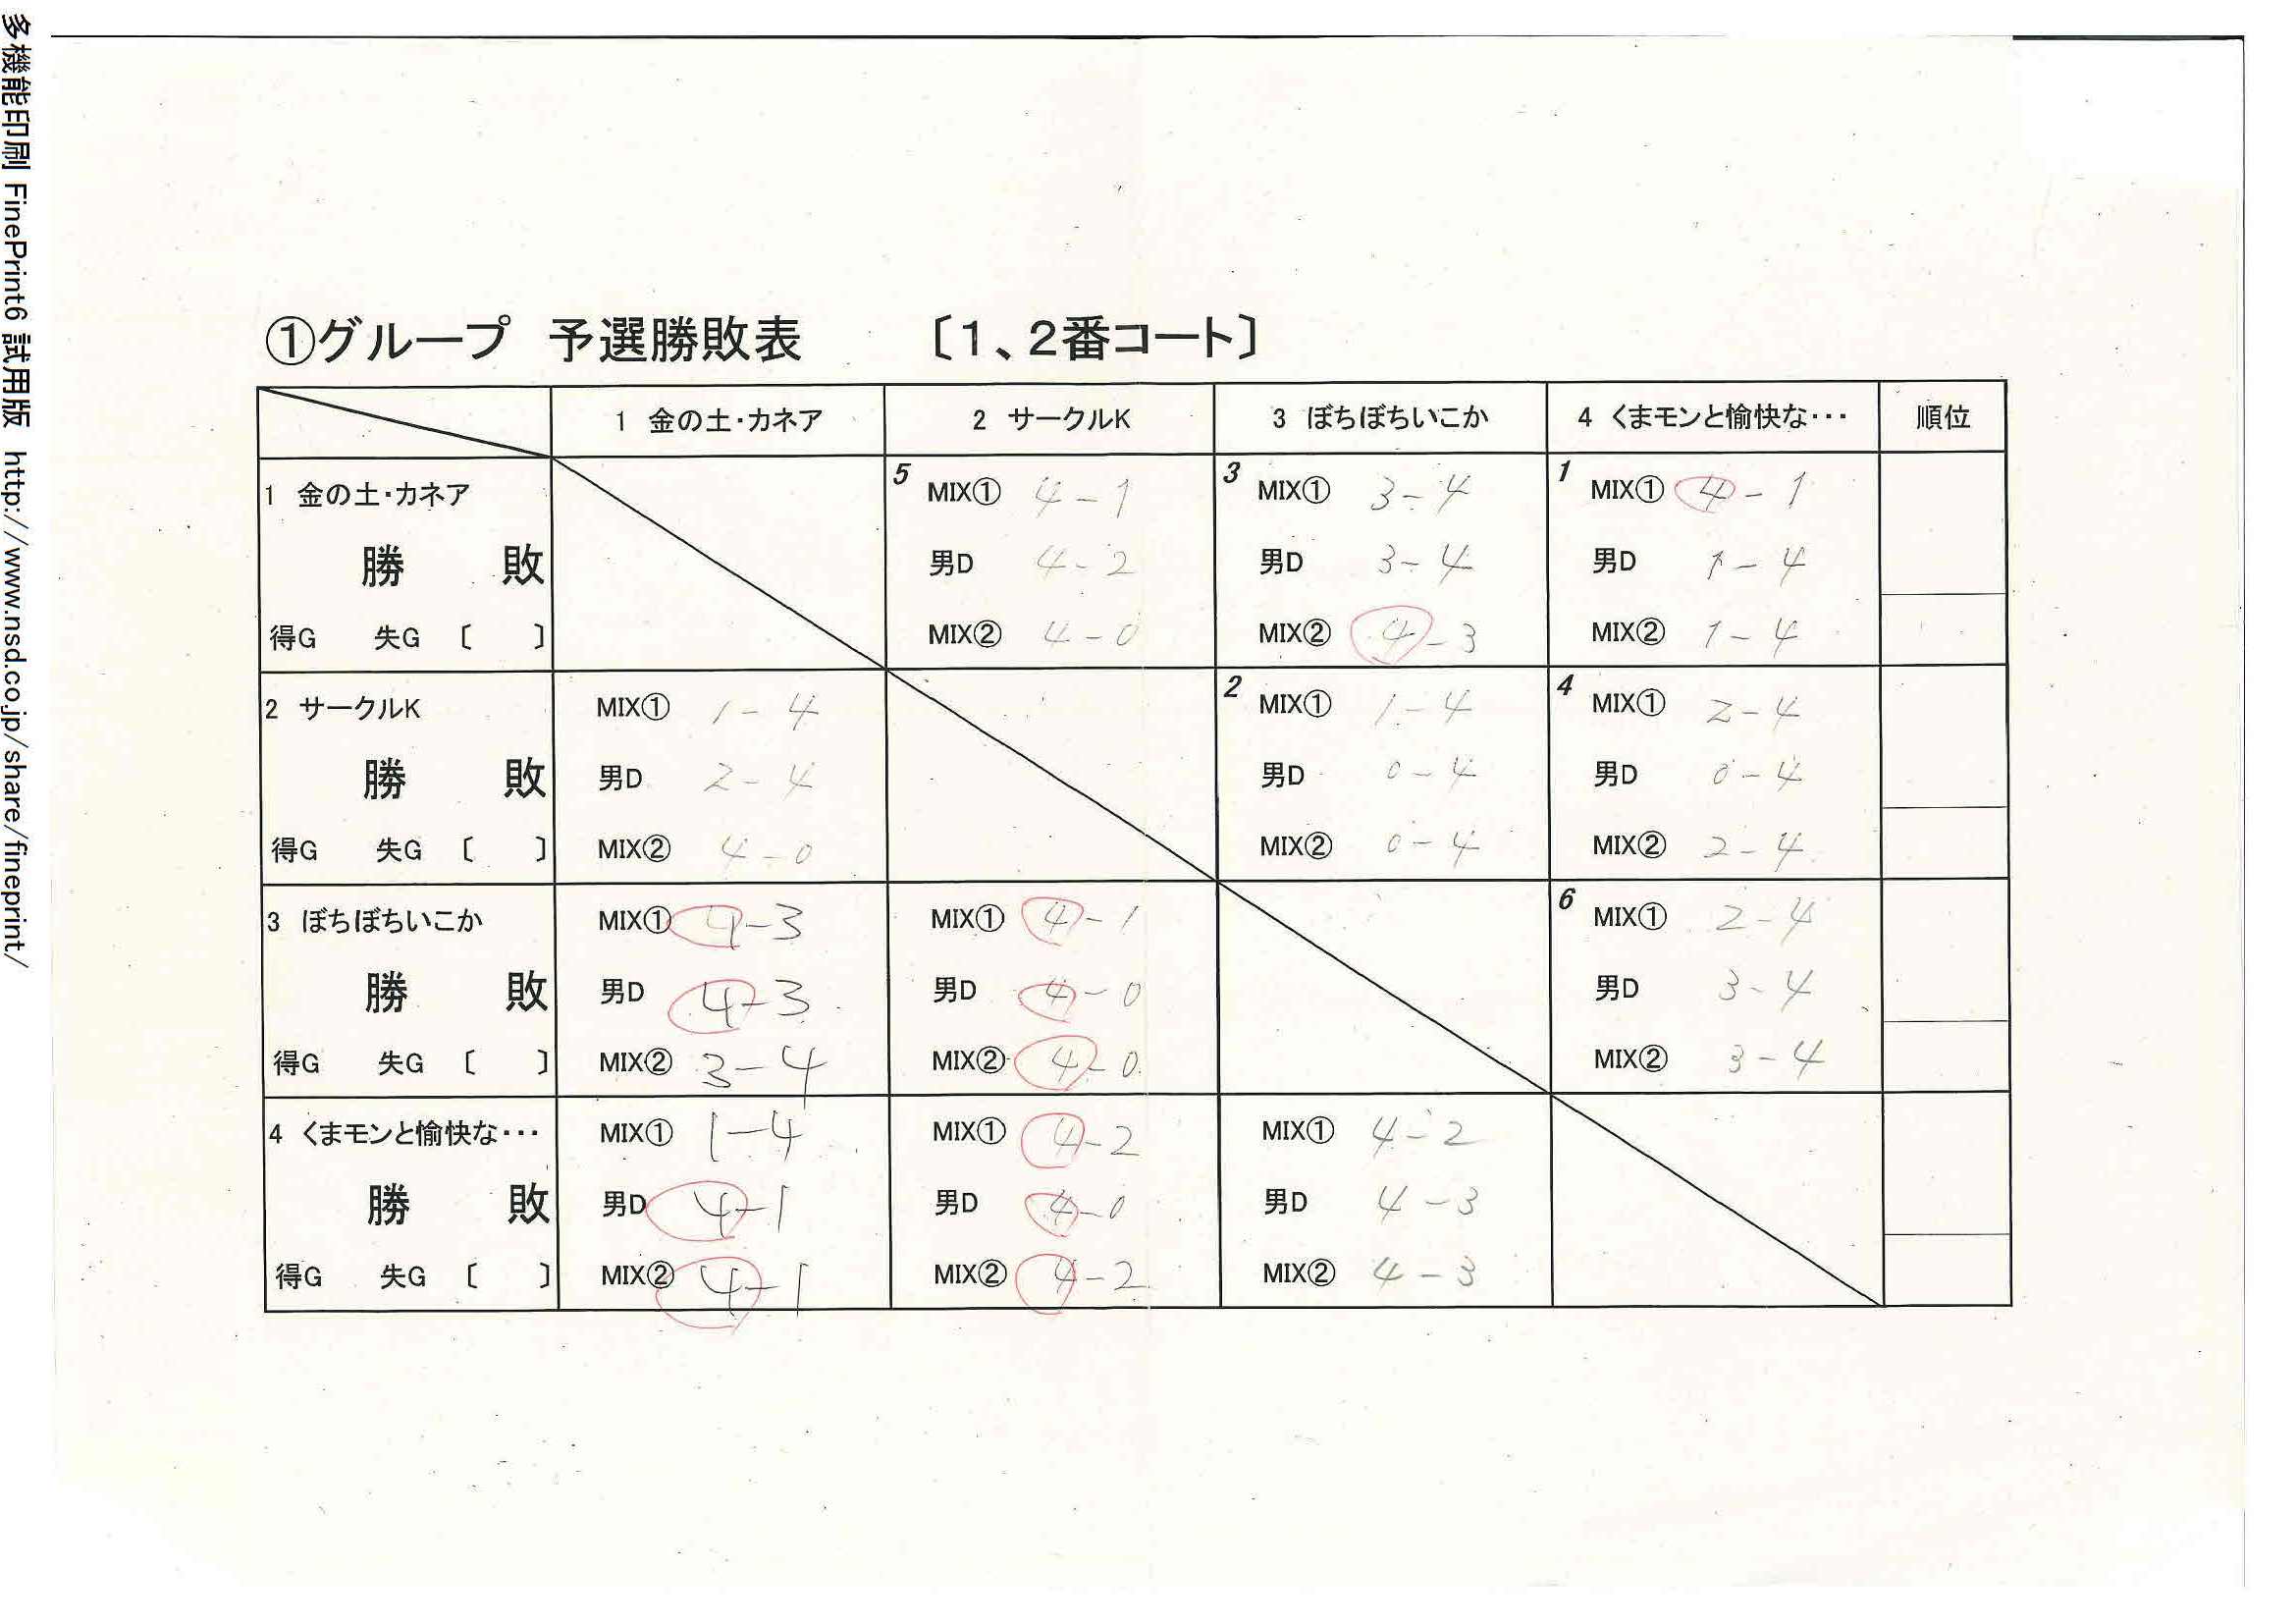 多機能印刷 FinePrint6 試用版 http://www.nsd.co.jp/share/fineprint/
①グループ 予選勝敗表 〔1、2番コート〕
1 金の土・カネア 2 サークルK 3 ぼちぼちいこか 4 くまモンと愉快な・・・ 順位
1 金の土・カネア 5 MIX① 4-1 3 MIX① 3-4 1 MIX① 4-1
勝 敗 男D 4-2 男D 3-4 男D 1-4
得G 失G 〔 〕 MIX② 4-0 MIX② 4-3 MIX② 1-4
2 サークルK MIX① 1-4 2 MIX① 1-4 4 MIX① 2-4
勝 敗 男D 2-4 男D 0-4 男D 0-4
得G 失G 〔 〕 MIX② 4-0 MIX② 0-4 MIX② 2-4
3 ぼちぼちいこか MIX① 4-3 MIX① 4-1 6 MIX① 2-4
勝 敗 男D 4-3 男D 4-0 男D 3-4
得G 失G 〔 〕 MIX② 3-4 MIX② 4-0 MIX② 3-4
4 くまモンと愉快な・・・ MIX① 1-4 MIX① 4-2 MIX① 4-2
勝 敗 男D 4-1 男D 4-0 男D 4-3
得G 失G 〔 〕 MIX② 4-1 MIX② 4-2 MIX② 4-3